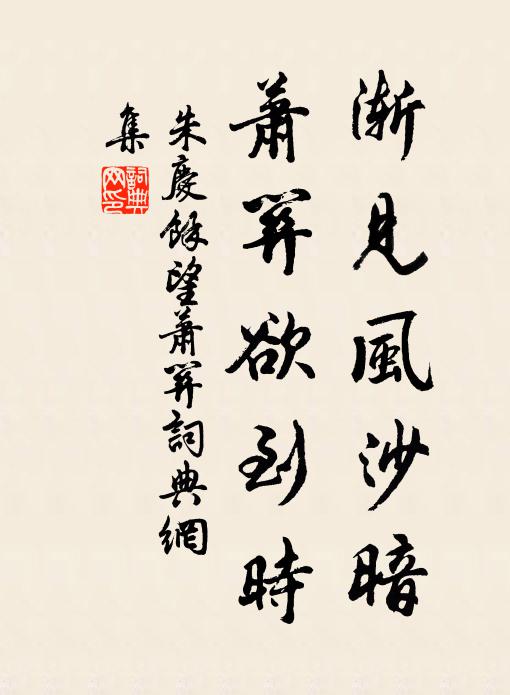 漸見風沙暗
蕭關欲到時
朱慶餘望蕭關詞典網
集
詞典
网印